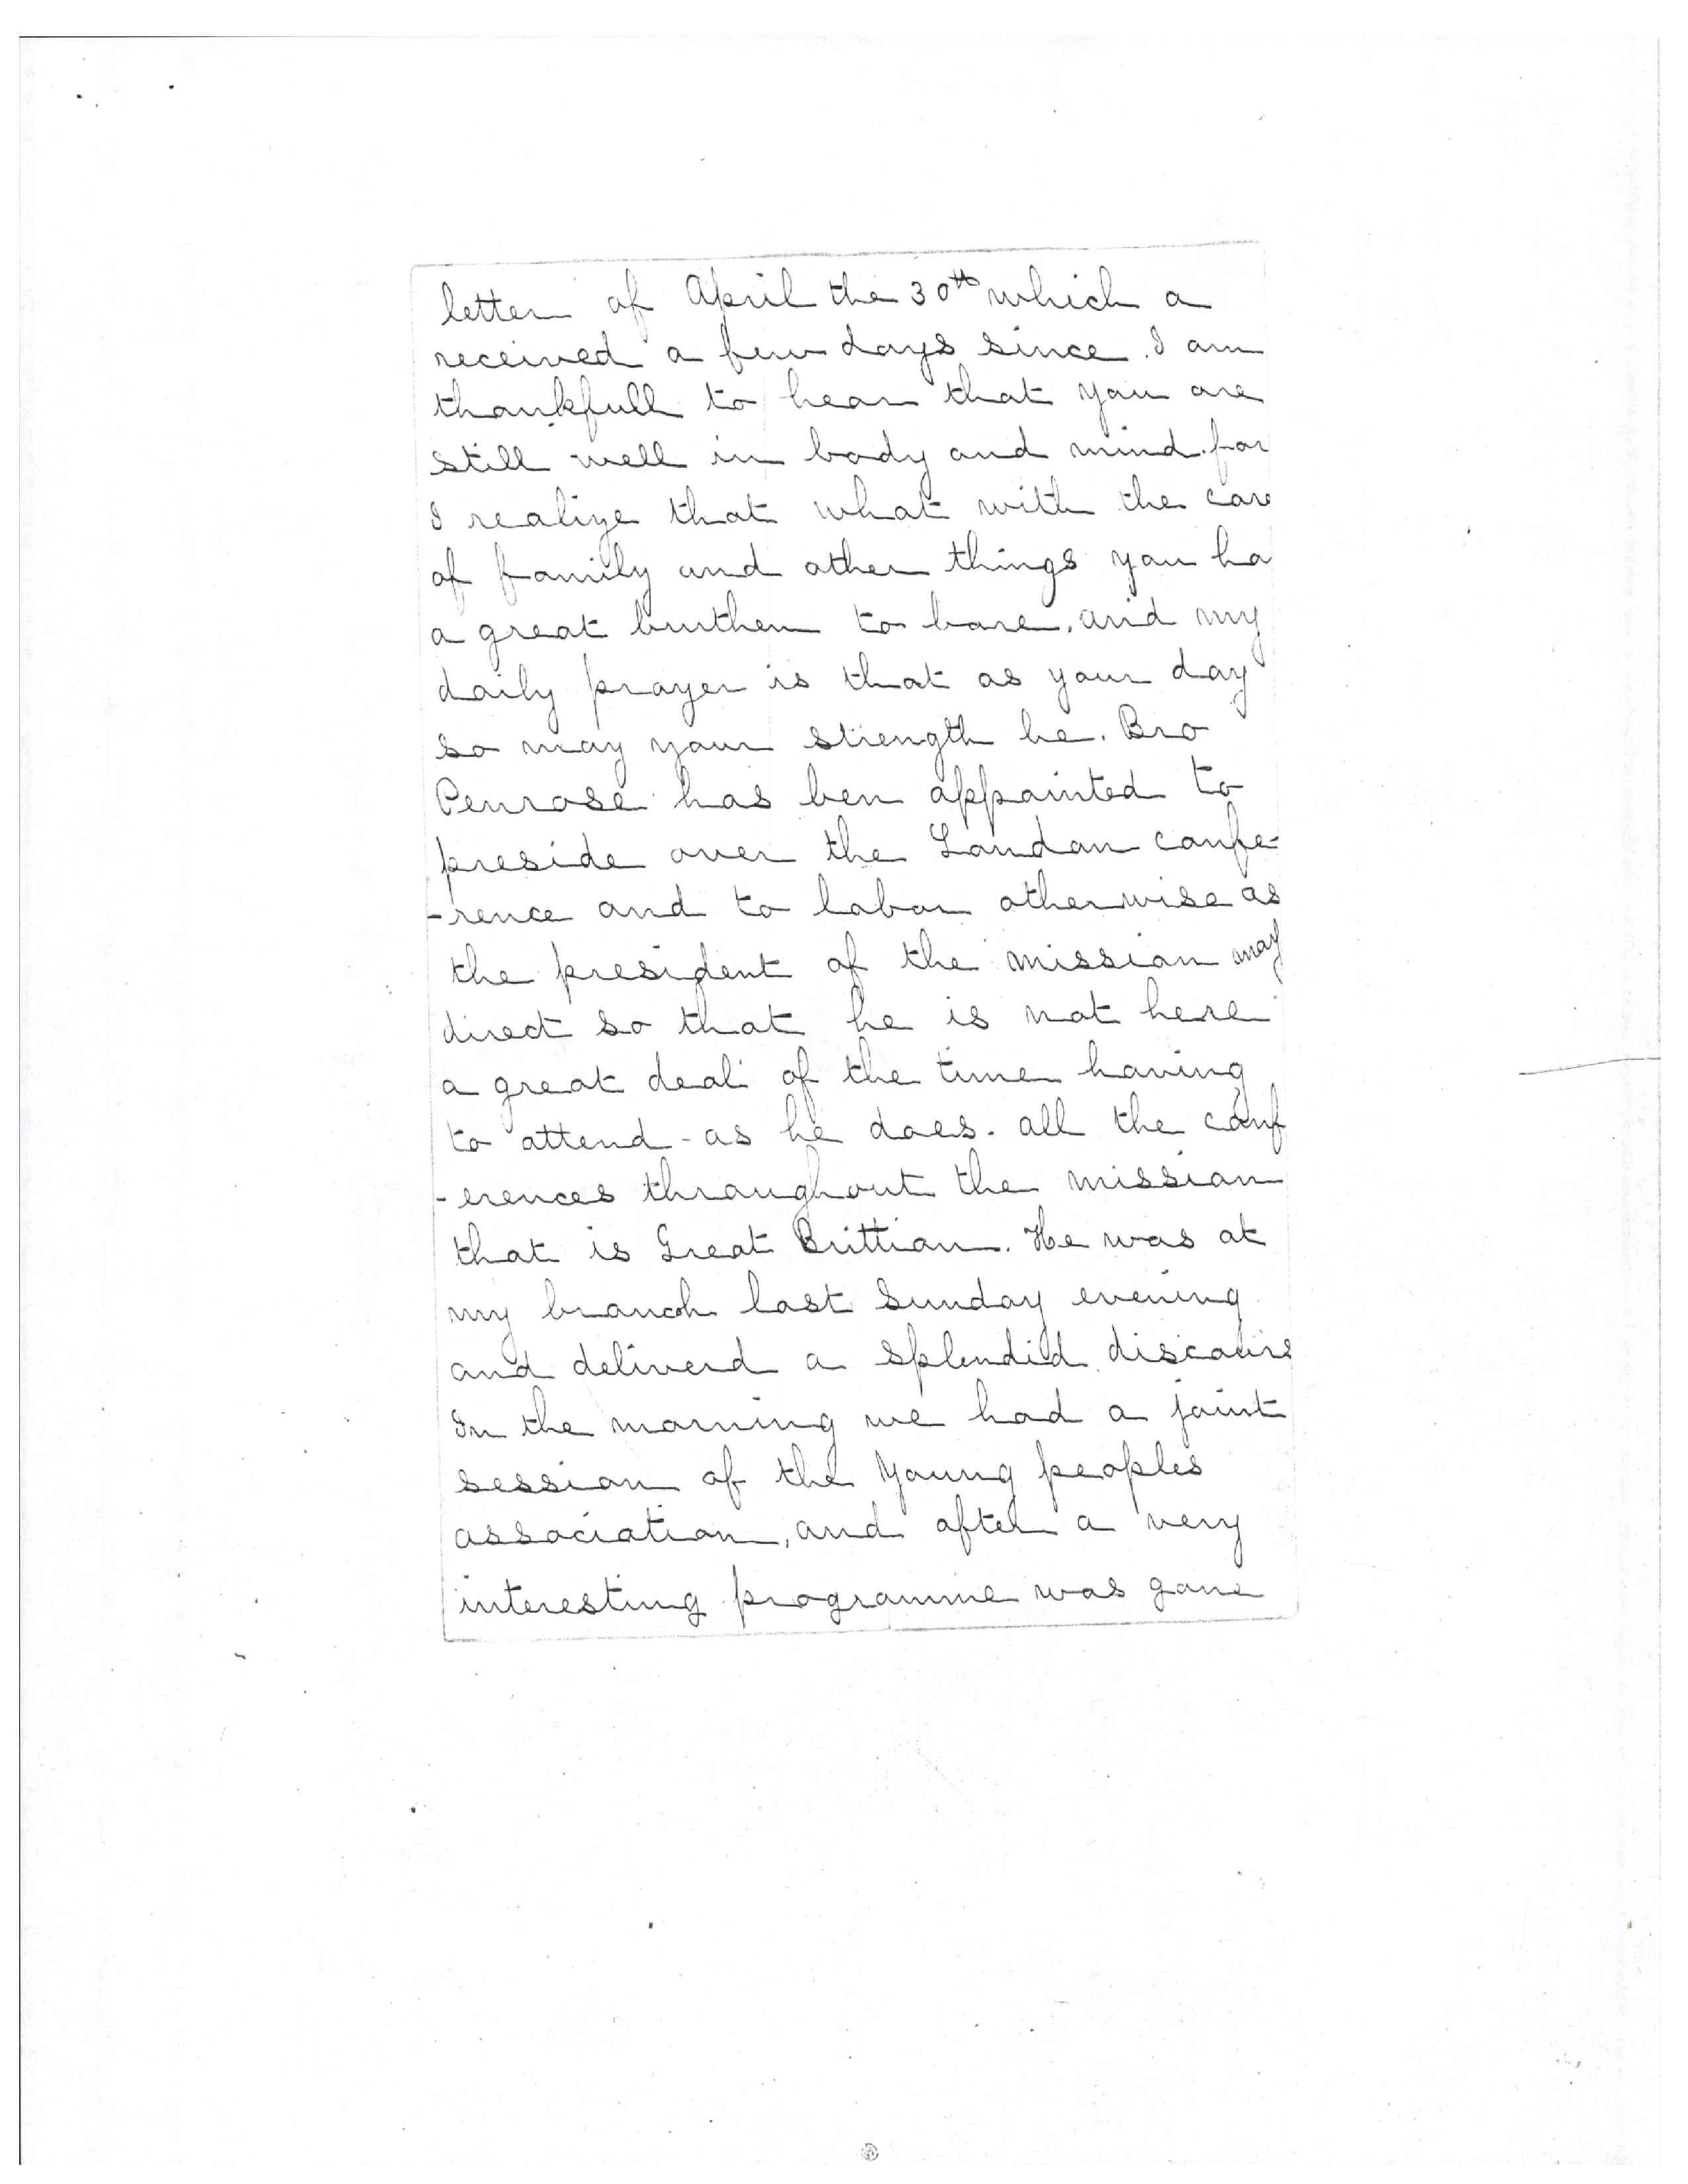 letter of April the 30th which a
received a few days since. I am
thankfull to hear that you are
still well in body and mind. for
I realize that what with the care
of family and other things you ha
a great burthen to bare, and my
daily prayer is that as your day
so may your strength be. Bro
Penrose has ben appointed to
preside over the London confe-
-rence and to labor otherwise as
the president of the mission may
direct so that he is not here
a great deal of the time having
to attend - as he does. all the conf
-erences throughout the mission
that is Great Brittian. He was at
my branch last Sunday evening
and deliverd a splendid discours
In the morning we had a joint
session of the Young peoples
association, and after a very
interesting programme was gone